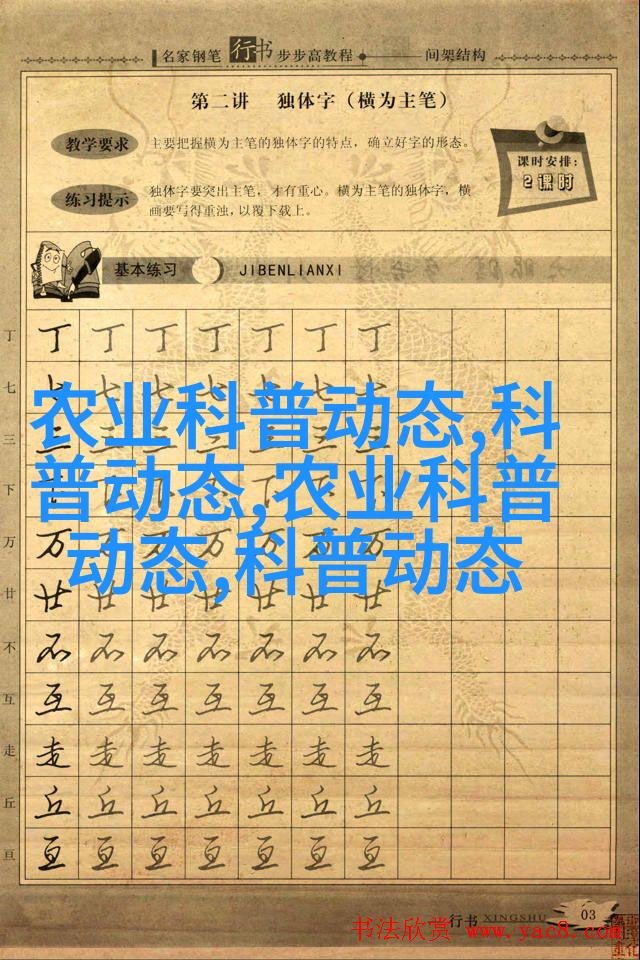 名家钢笔 行书 步步高教程 间架结构
第二讲 独体字（横为主笔）
教学要求 主要把握横为主笔的独体字的特点，确立好字的形态。
课时安排：
2课时
练习提示 独体字要突出主笔，才有重心。横为主笔的独体字，横
画要写得重浊，以覆下载上。
基本练习 JIBENLIANXI
丁 丁 丁 丁 丁 丁 丁 丁
七 七 七 七 七 七 七 七
农业科普动态,科
三 三 三 三 三 三 三 三
普动态,农业科普
下 下 下 下 下 下 下 下
动态,科普动态
万 万 万 万 万 万 万 万
廿 廿 廿 廿 廿 廿 廿 廿
不 不 不 不 不 不 不 不
互 互 互 互 互 互 互 互
走 走 走 走 走 走 走 走
丘 丘 丘 丘 丘 丘 丘 丘
亘 亘 亘 亘 亘 亘 亘 亘
行书 XINGSHU 03
书法欣赏 www.yac8.com